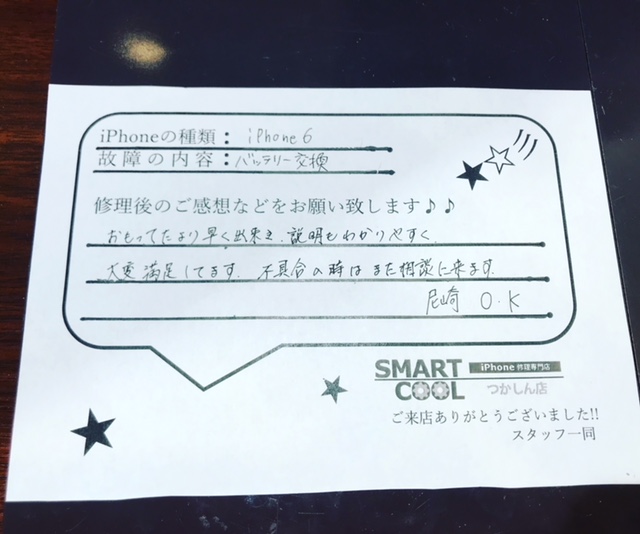 iPhoneの種類： iPhone6
故障の内容：バッテリー交換
修理後のご感想などをお願い致します♪♪
おもってたより早く出来き、説明もわかりやすく
大変満足してます。不具合の時はまた相談に来ます。
尼崎 O.K
SMART COOL iPhone修理専門店
つかしん店
ご来店ありがとうございました!!
スタッフ一同